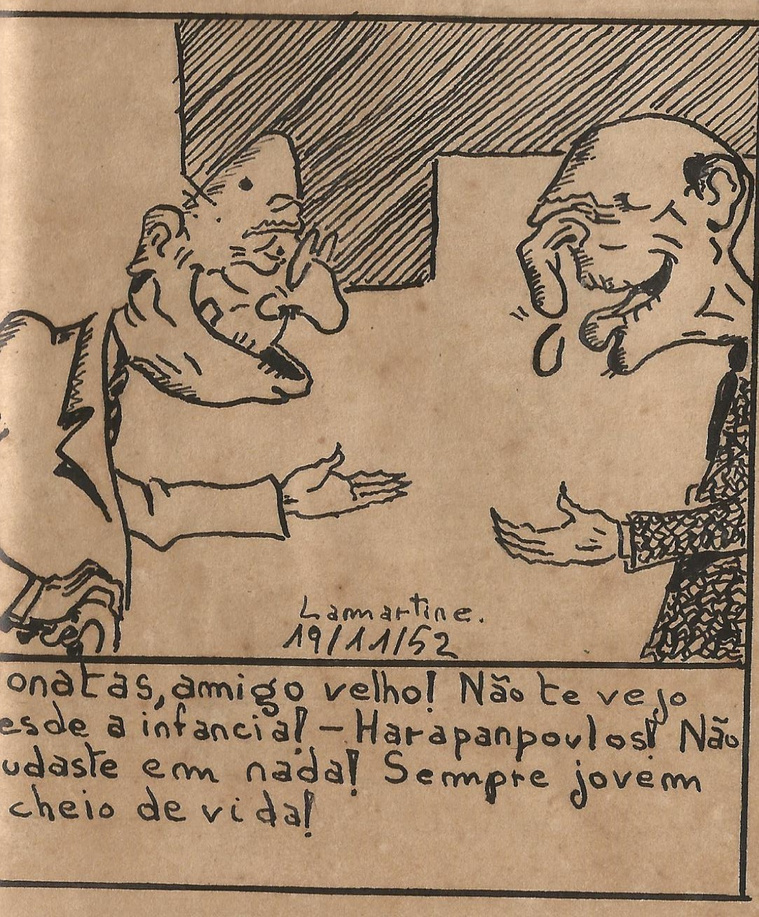 Lammartine.
19/11/52
onatas, amigo velho! Não te vejo
esde a infancia! - Harapanpoulos! Não
udaste em nada! Sempre jovem
cheio de vida!